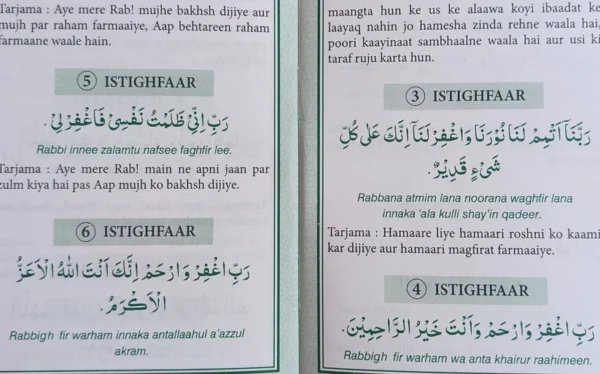 maangta hun ke us ke alaawa koyi ibaadat ke
laayaq nahin jo hamesha zinda rehne waala hai,
poori kaayinaat sambhaalne waala hai aur usi ki
taraf ruju karta hun.
③ ISTIGHFAAR
رَبَّنَاۤ اَتْمِمْ لَنَا نُوْرَنَا وَاغْفِرْ لَنَا اِنَّكَ عَلٰى كُلِّ
شَىْءٍ قَدِيْرٌ.
Rabbana atmim lana noorana waghfir lana
innaka 'ala kulli shay'in qadeer.
Tarjama : Hamaare liye hamaari roshni ko kaami
kar dijiye aur hamaari magfirat farmaaiye.
④ ISTIGHFAAR
رَبِّ اغْفِرْ وَارْحَمْ وَاَنْتَ خَيْرُ الرَّاحِمِيْنَ.
Rabbigh fir warham wa anta khairur raahimeen.
Tarjama : Aye mere Rab! mujhe bakhsh dijiye aur
mujh par raham farmaaiye, Aap behtareen raham
farmaane waale hain.
⑤ ISTIGHFAAR
رَبِّ اِنِّىْ ظَلَمْتُ نَفْسِىْ فَاغْفِرْ لِىْ.
Rabbi innee zalamtu nafsee faghfir lee.
Tarjama : Aye mere Rab! main ne apni jaan par
zulm kiya hai pas Aap mujh ko bakhsh dijiye.
⑥ ISTIGHFAAR
رَبِّ اغْفِرْ وَارْحَمْ اِنَّكَ اَنْتَ اللهُ الْاَعَزُّ
الْاَكْرَمُ.
Rabbigh fir warham innaka antallaahul a'azzul
akram.